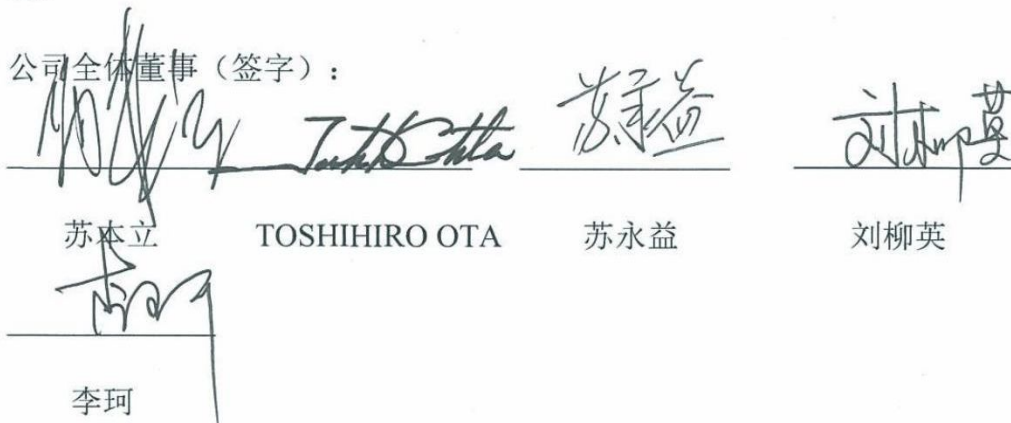 公司全体董事（签字）：
苏本立 TOSHIHIRO OTA 苏永益 刘柳英
苏永益 刘柳英
李珂